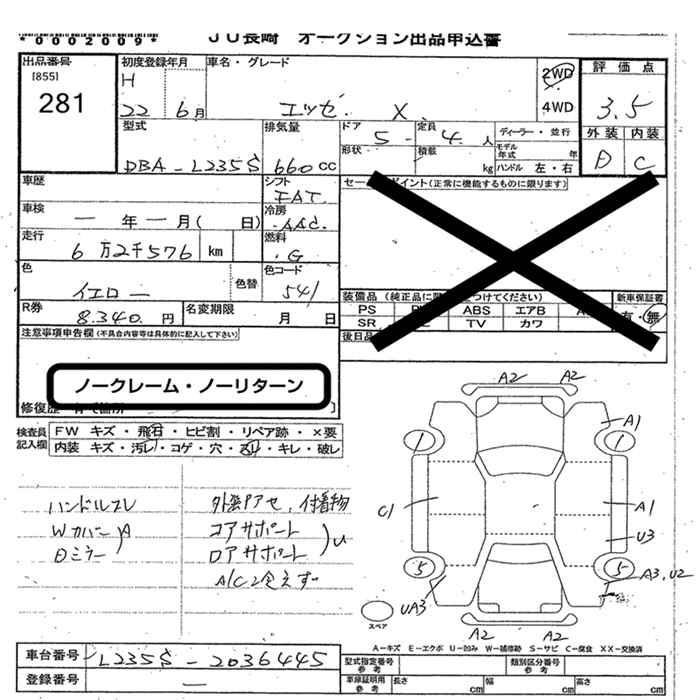 *0002009*
JU長崎 オークション出品申込書
出品番号
[855]
281
初度登録年月
H
22 6月
車名・グレード
エッセ X
2WD
4WD
評価点
3.5
外装 内装
D C
型式
DBA-L235S
排気量
660 CC
ドア
5
形状
定員
4人
積載
kg
ディーラー・並行
モデル年式 年
ハンドル 左・右
車歴
シフト
FAT
セールスポイント(正常に機能するものに限ります)
車検
一年一月( 日)
冷房
AAC
走行
6万2千576 km
燃料
G
色
イエロー
色替
色コード
541
R券
8.340.円
名変期限
月 日
装備品(純正品に つけてください)
PS ABS エアB
SR TV カワ
新車保証書
有・無
後日品
注意事項申告欄(不具合内容等は具体的に記入して下さい)
ノークレーム・ノーリターン
修復歴
検査員記入欄
FW キズ・飛石・ヒビ割・リペア跡・×要
内装 キズ・汚レ・コゲ・穴・スレ・キレ・破レ
ハンドルスレ
Wカバー
Dミラー
A
外装アセ、付着物
コアサポート
ロアサポート
U
A/C冷えず
A2 A2
A1
1 1
C1 A1
U3
5 5
A3,U2
UA3
スペア
A2 A2
A-キズ E-エクボ U-凹み W-補修跡 S-サビ C-腐食 XX-交換済
車台番号
L235S-2036445
登録番号
一
型式指定番号参考
類別区分番号参考
車庫証明用参考
長さ cm
幅 cm
高さ cm